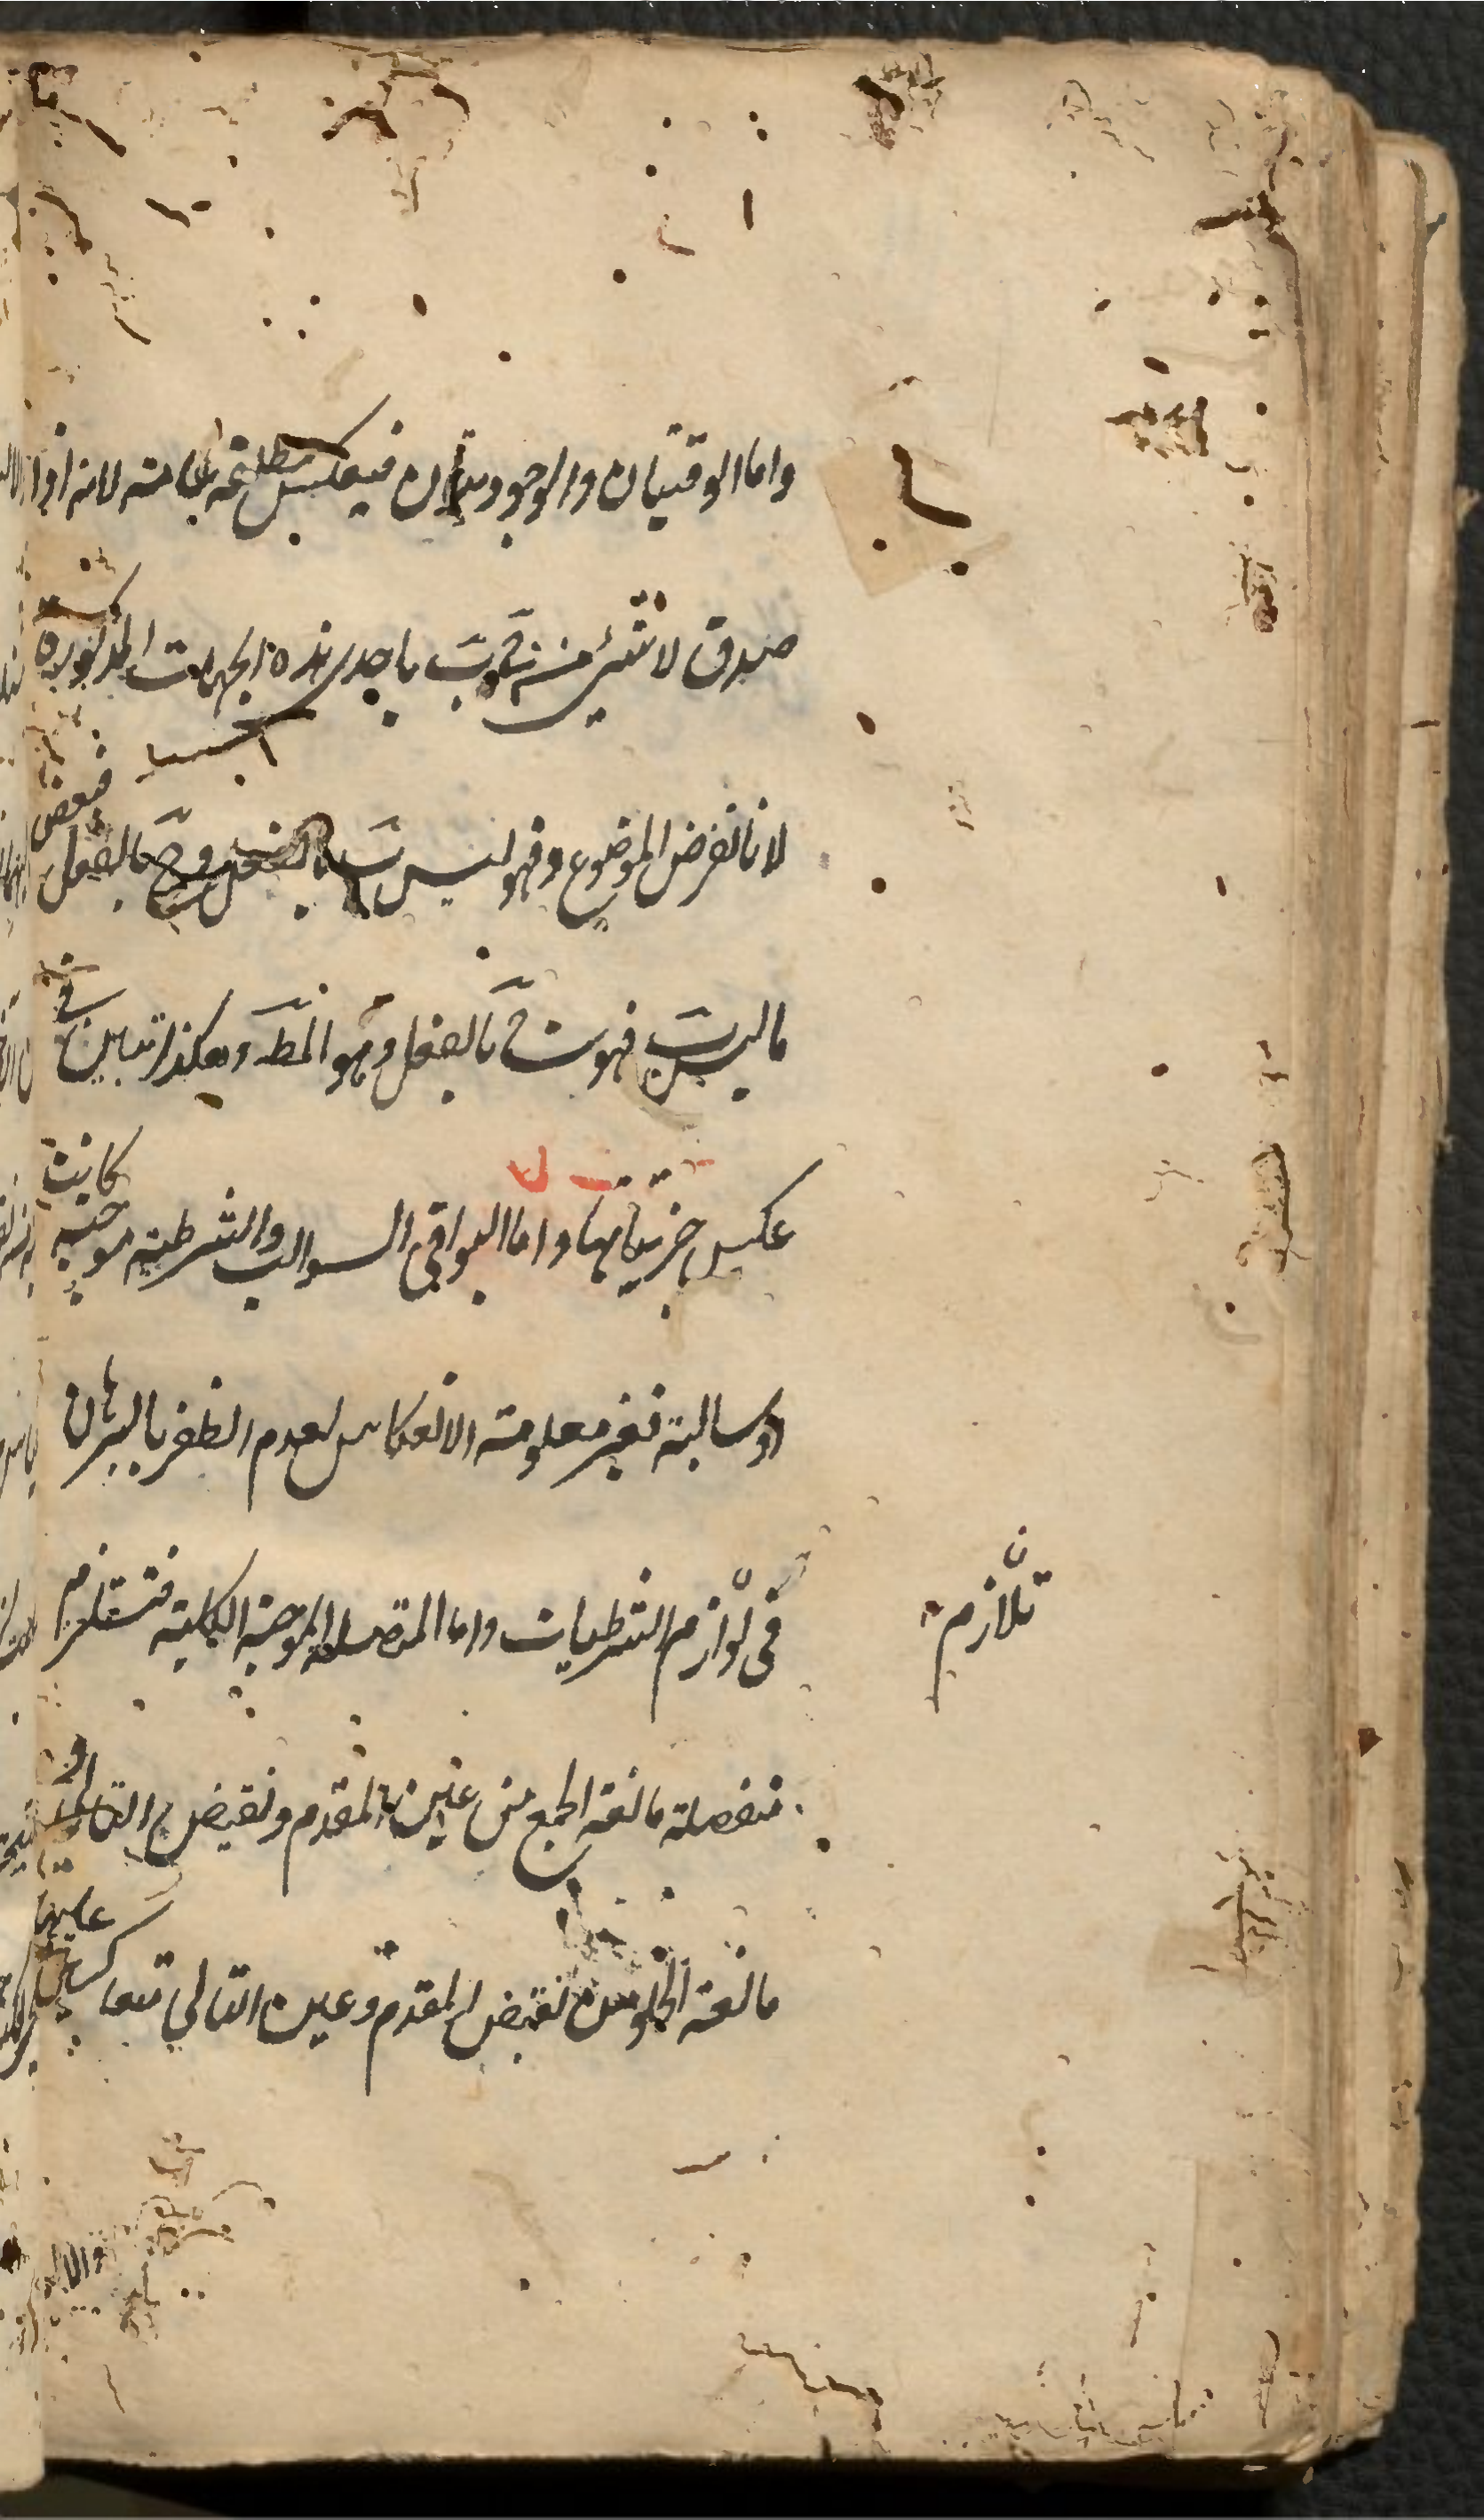 واما الوقتيتان والوجوديتان فينعكس مطلقة عامة لانه اذا
صدق لا شئ من ج ب باحدى هذه الجهات المذكورة
لانا نفرض الموضوع د فهو ليس ب بالفعل و ج بالفعل فبعض
ما ليس ب فهو ج بالفعل وهو المط وهكذا تبين في
عكس جزئياتها واما البواقي السوالب والشرطية موجبة كانت
او سالبة فغير معلومة الانعكاس لعدم الظفر بالبرهان
في لوازم الشرطيات واما المتصلة الموجبة الكلية فتستلزم
تلازم
منفصلة مانعة الجمع من عين المقدم ونقيض التالي و
مانعة الخلو من نقيض المقدم وعين التالي متعاكسين عليها